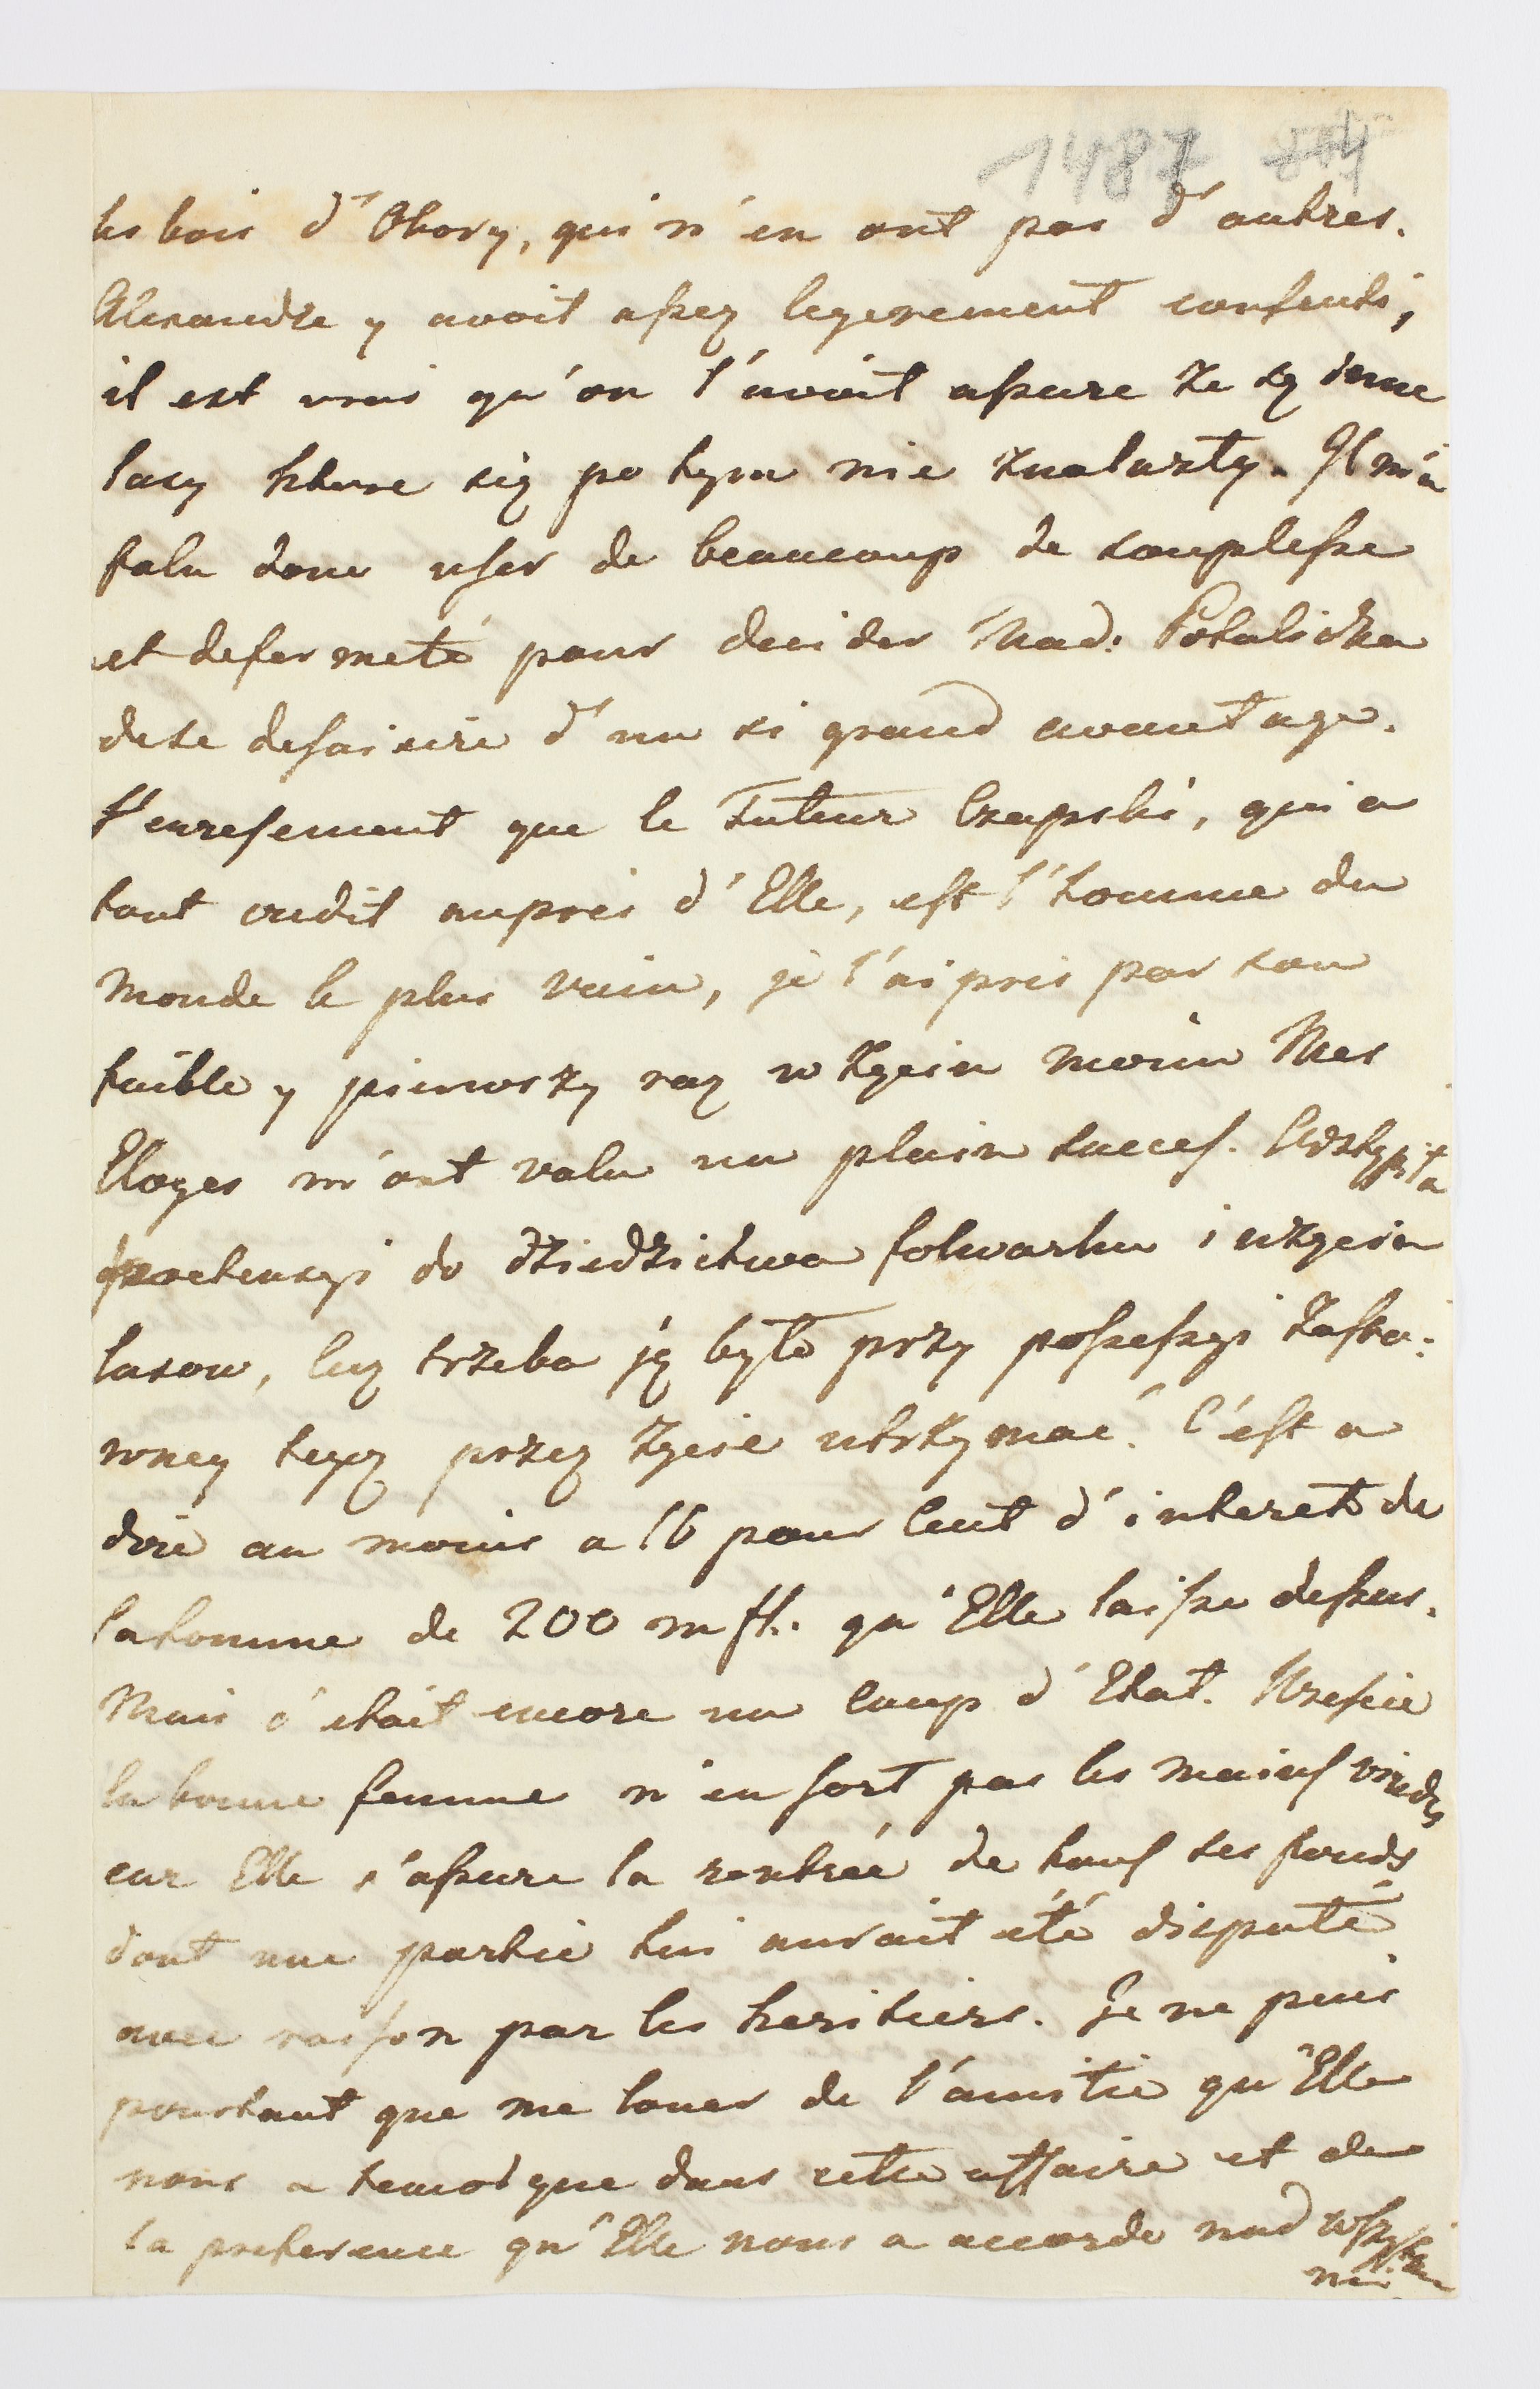 1487 804
les bois d'Obory, qui n'en ont pas d'autres.
Alexandre y avoit assez legerement consenti,
il est vrai qu'on l'avoit assure że są inne
lasy kture się po tym nie znalazły. Il m'a
falu donc user de beaucoup de souplesse
et de fermeté pour decider Mad: Potulicka
de se desaisire d'un si grand avantage.
Heuresement que le Tuteur Czapski, qui a
tant credit aupres d'Elle, est l'homme du
monde le plus vain, je l'ai pris par son
faible y pierwszy raz w życiu moim Mes
Eloges m'ont valu un plain succes. Odstąpiła
pretensyi do dziedzictwa folwarku i użycia
lasow, lecz trzeba ją było przy possessyi Zasta:
wney tegoż przez życie utrzymać. C'est a
dire au moins a 16 pour Cent d'interet de
la somme de 200 m fl. qu'Elle laisse dessus.
Mais c'etait encore un Coup d'Etat.
la bonne femme n'en sort pas les mains vuides
car Elle s'assure la rentrée de tous ses fonds
dont une partie lui aurait été disputé
avec raison par les heritiers. Je ne puis
pourtant que me louer de l'amitie qu'Elle
nous a temoigne dans cette affaire et de
la preference qu'Elle nous a accorde nad wszystkie
mi